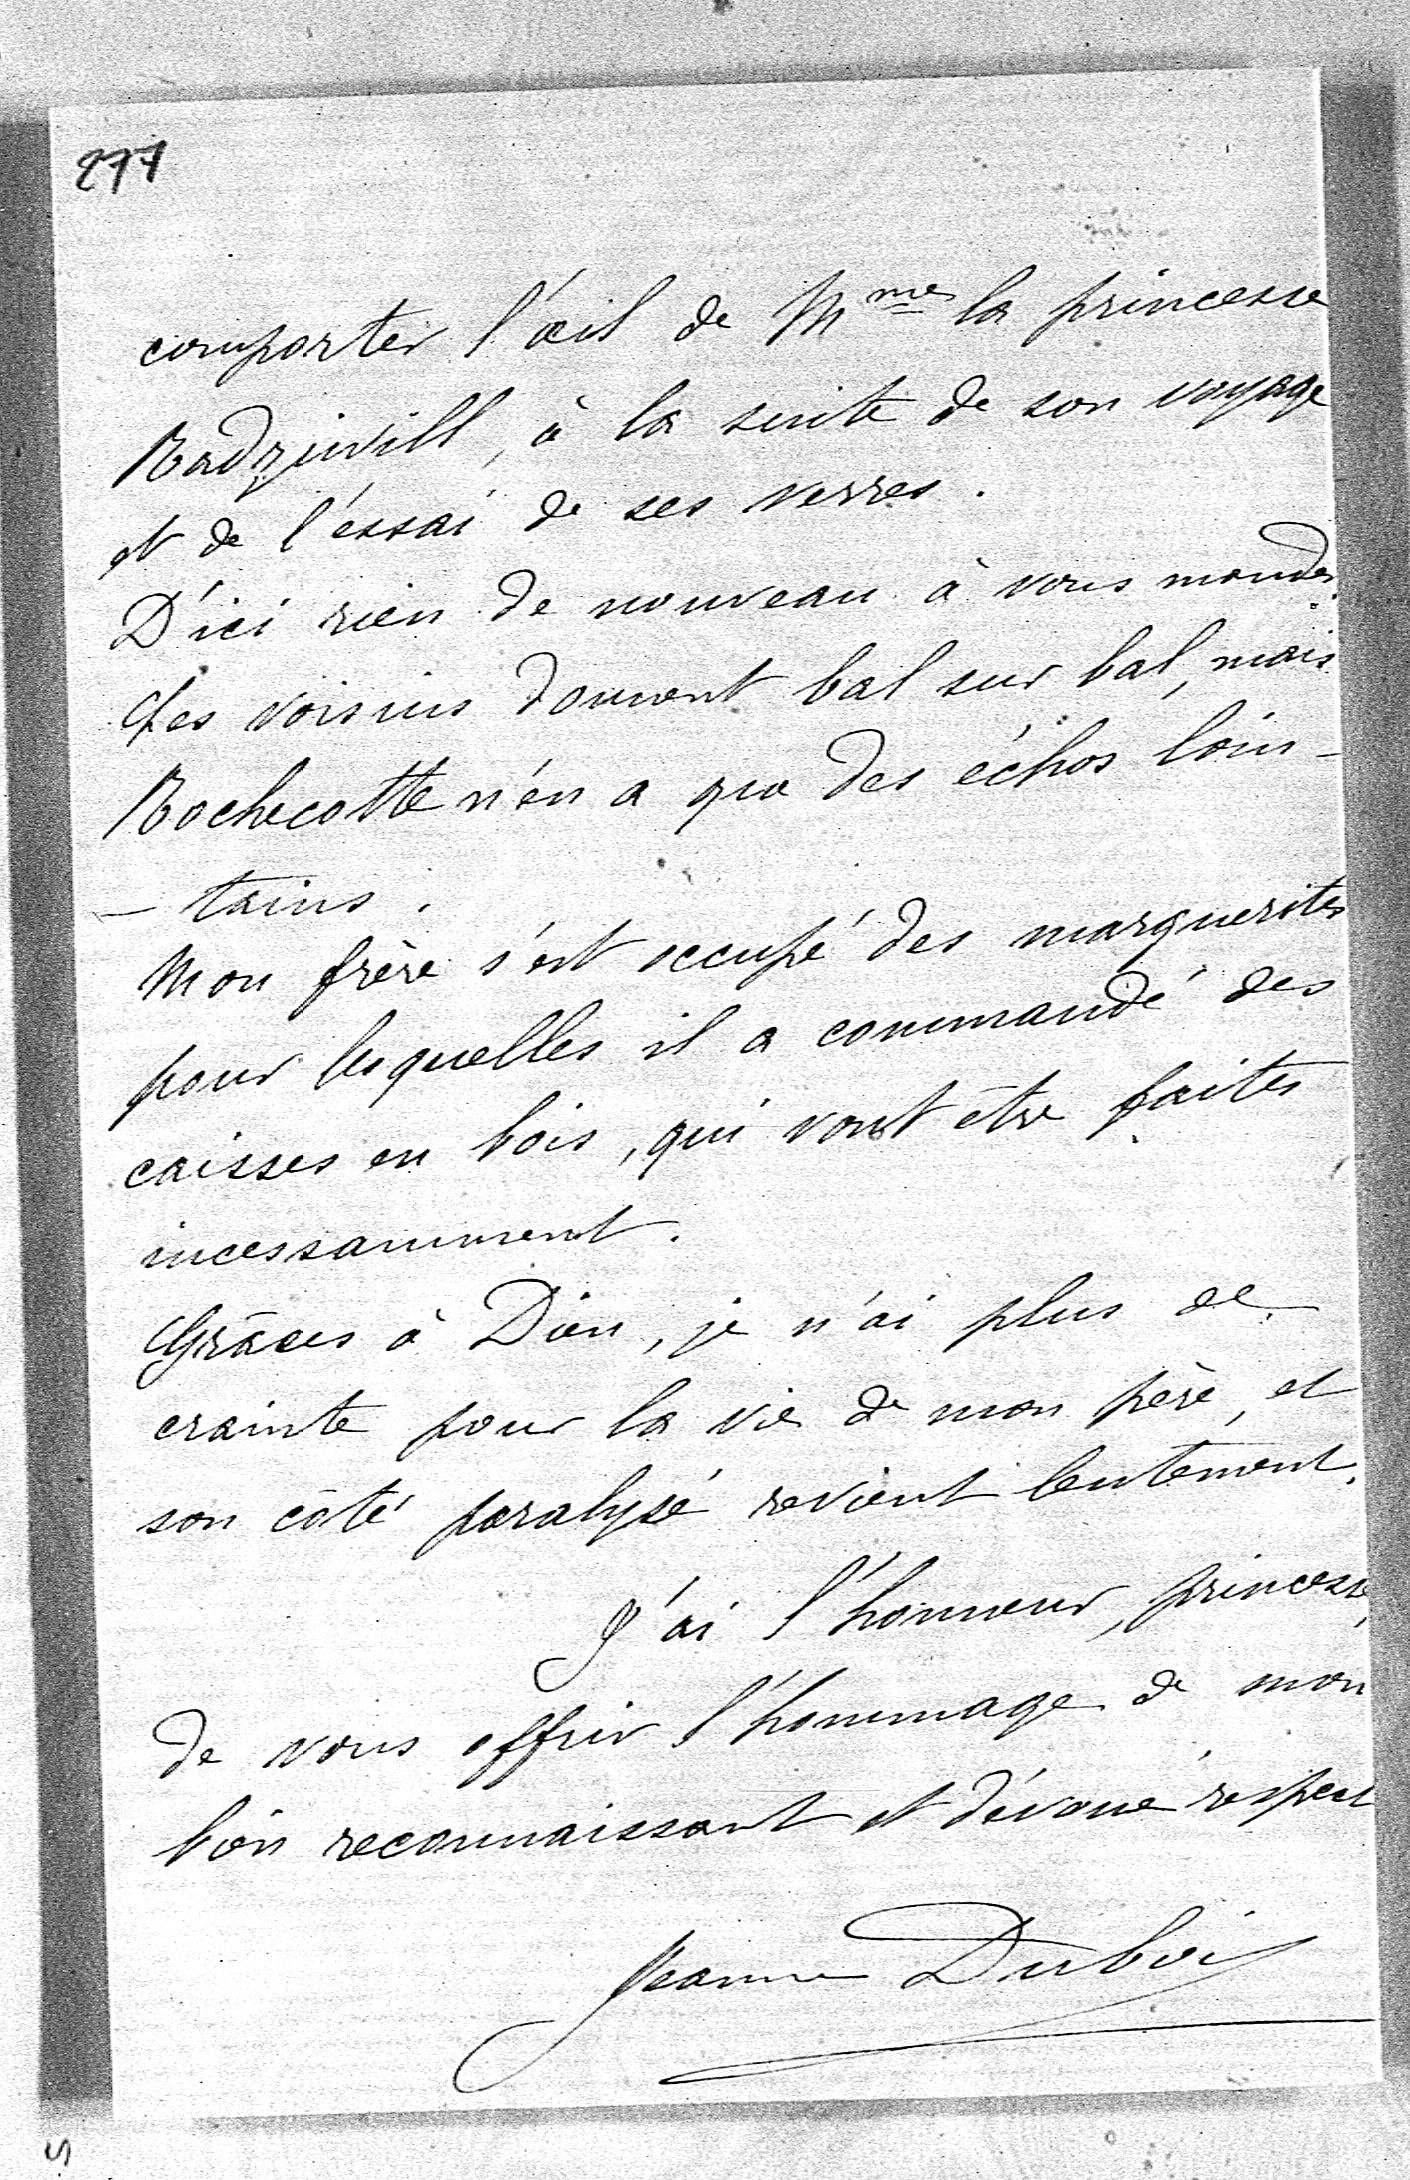 277
comporter l'œil de Mme la princesse
Radziwill, à la suite de son voyage
et de l'éssai de ses verres.
D'ici rien de nouveau à vous mander.
Les voisins donnent bal sur bal, mais
Rochecotte n'en a que des échos loin-
- tains.
Mon frère s'est occupé des marguerites
pour lesquelles il a commandé des
caisses en bois, qui vont être faites
incessamment.
Grâces à Dieu, je n'ai plus de
crainte pour la vie de mon père, et
son côté paralysé revient lentement.
J'ai l'honneur, princesse,
de vous offrir l'hommage de mon
bien reconnaissant et dévoué respect
Jeanne Dubois